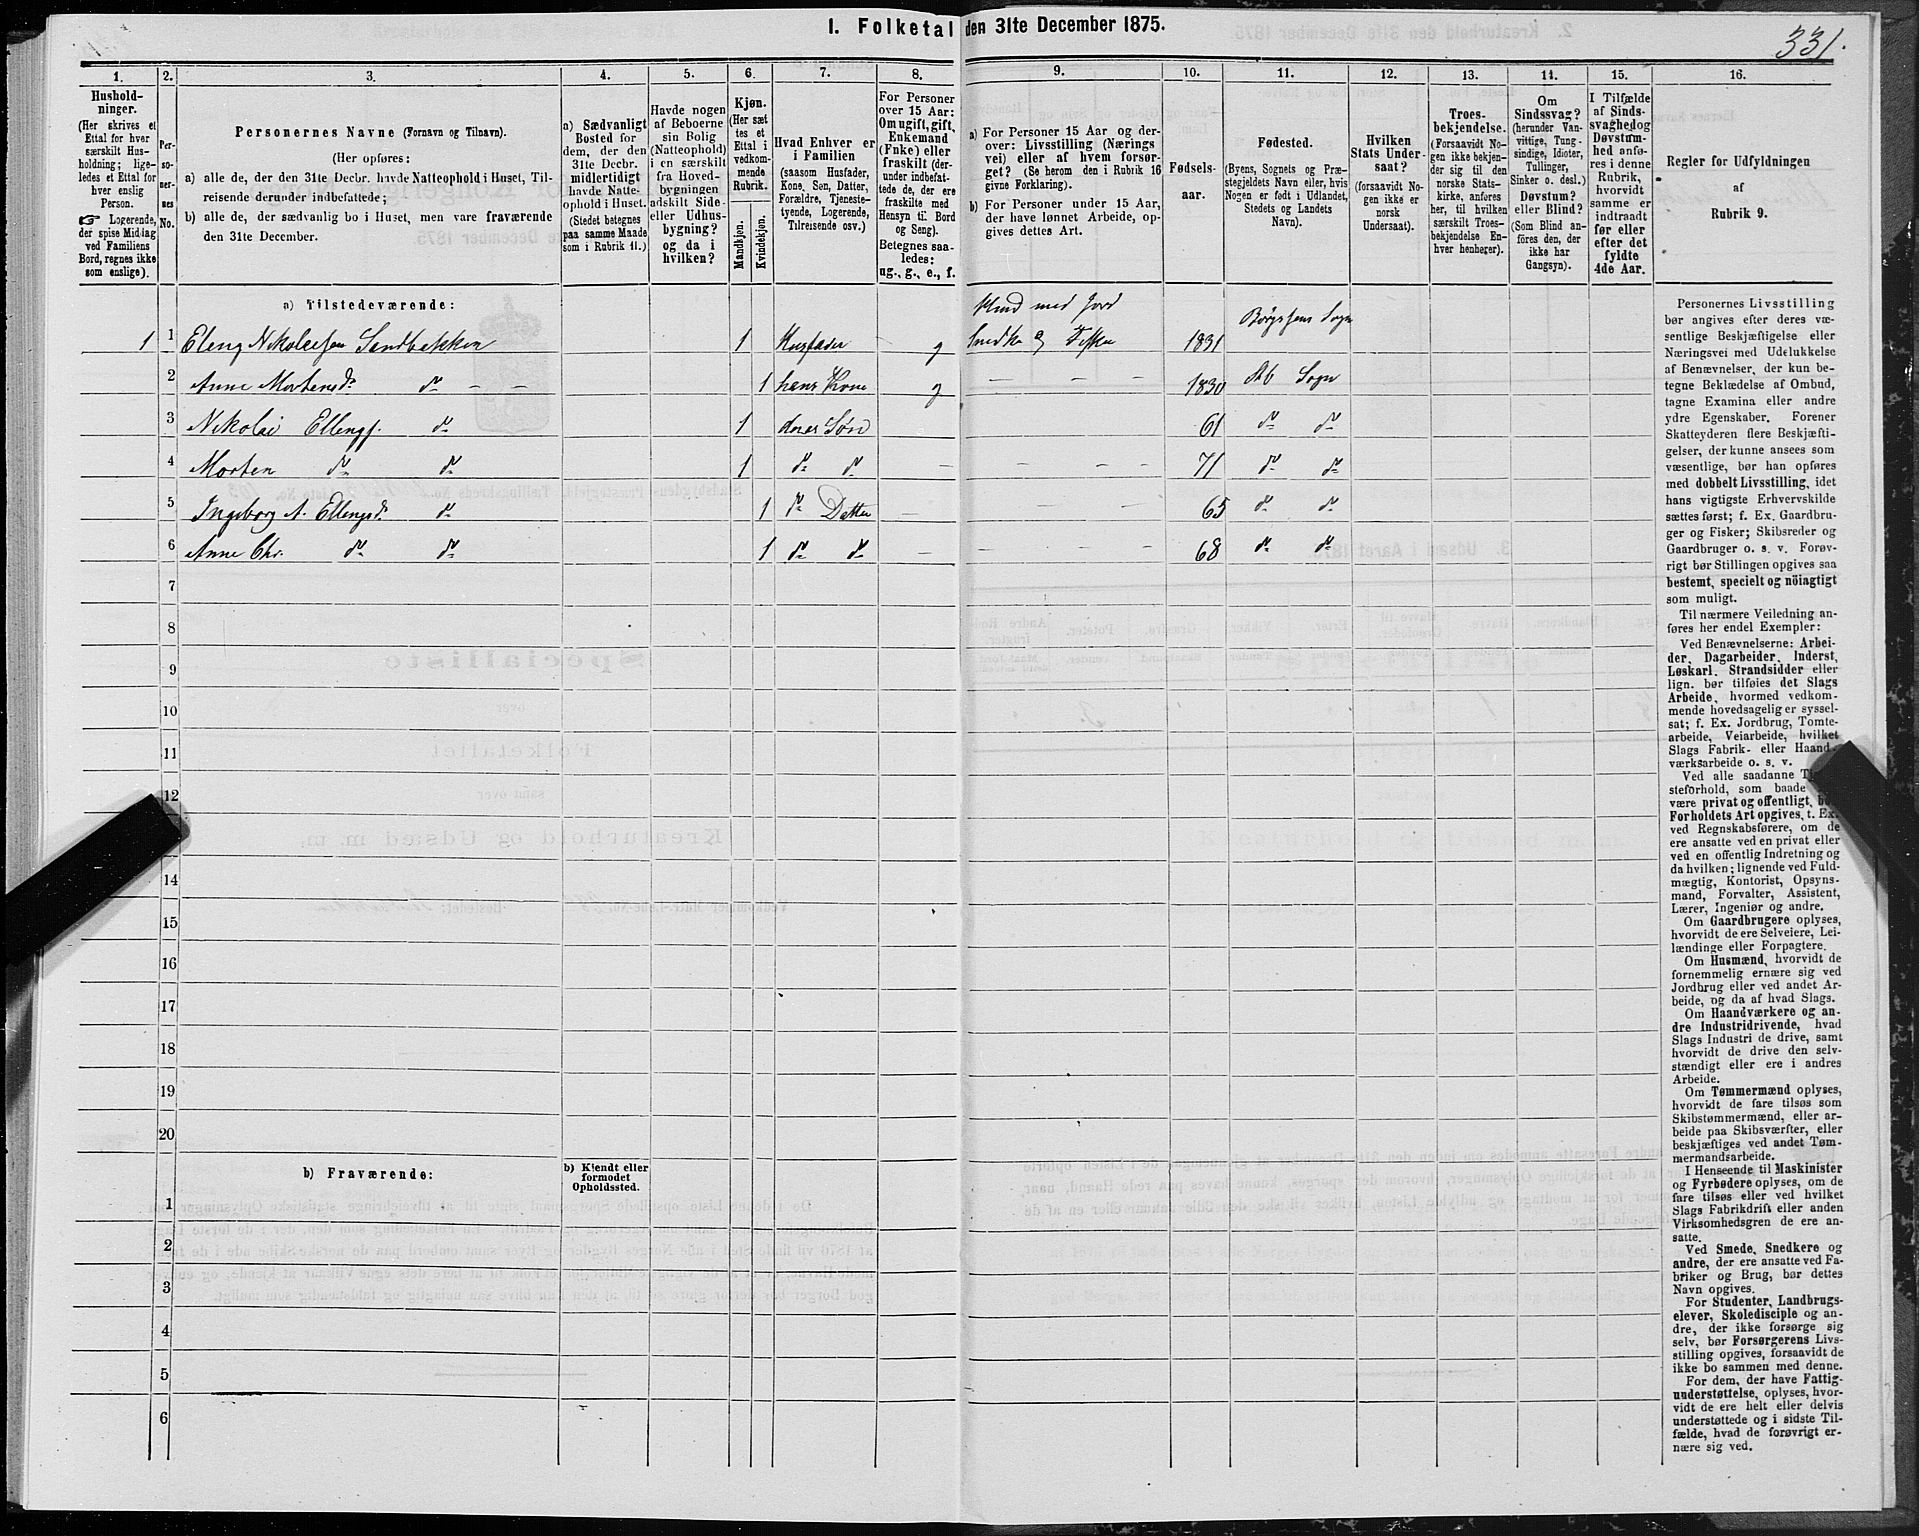 1. Folketal den 31te December 1875.
331.
1.
2.
3.
4.
5.
6.
7.
8.
9.
10.
11.
12.
13.
14.
15.
16.
Hushold-
ninger.
(Her skrives et
Ettal for hver
særskilt Hus-
holdning; lige-
ledes et Ettal for
hver enslig
Person.
☞ Logerende,
der spise Middag
ved Familiens
Bord, regnes ikke
som enslige).
Per-
so-
ner-
nes
No.
Personernes Navne (Fornavn og Tilnavn).
(Her opføres:
a) alle de, der den 31te Decbr. havde Natteophold i Huset, Til-
reisende derunder indbefattede;
b) alle de, der sædvanlig bo i Huset, men vare fraværende
den 31te December.
a) Sædvanligt
Bosted for
dem, der den
31te Decbr.
midlertidigt
havde Natte-
ophold i Huset.
(Stedet betegnes
paa samme Maade
som i Rubrik 11.)
Havde nogen
af Beboerne
sin Bolig
(Natteophold)
i en særskilt
fra Hoved-
bygningen
adskilt Side-
eller Udhus-
bygning?
og da i
hvilken?
Kjøn.
(Her sæt
tes et
Ettal i
vedkom-
mende
Rubrik.
Mandkjøn.
Kvindekjøn.
Hvad Enhver er
i Familien
(saasom Husfader,
Kone, Søn, Datter,
Forældre, Tjeneste-
tyende, Logerende,
Tilreisende osv.)
For Personer
over 15 Aar:
Om ugift, gift,
Enkemand
(Enke) eller
fraskilt (der-
under indbefat-
tede de, der ere
fraskilte med
Hensyn til Bord
og Seng).
Betegnes saa-
ledes:
ug., g., e., f.
a) For Personer 15 Aar og der-
over: Livsstilling (Nærings
vei) eller af hvem forsør-
get? (Se herom den i Rubrik 16
givne Forklaring).
b) For Personer under 15 Aar,
der have lønnet Arbeide, op-
gives dettes Art.
Fødsels-
aar.
Fødested.
(Byens, Sognets og Præ-
stegjeldets Navn eller, hvis
Nogen er født i Udlandet,
Stedets og Landets
Navn).
Hvilken
Stats Under-
saat?
(forsaavidt No-
gen ikke er
norsk
Undersaat).
Troes-
bekjendelse.
(Forsaavidt No-
gen ikke bekjen-
der sig til den
norske Stats-
kirke, anføres
her, til hvilken
særskilt Troes-
bekjendelse En-
hver henhører).
Om
Sindssvag?
(herunder Van-
vittige, Tung-
sindige, Idioter,
Tullinger,
Sinker o. desl.)
Døvstum?
eller Blind?
(Som Blind an-
føres den, der
ikke har
Gangsyn).
I Tilfælde
af Sinds-
svaghed og
Døvstum-
hed anfø-
res i denne
Rubrik,
hvorvidt
samme er
indtraadt
før eller
efter det
fyldte
4de Aar.
Regler for Udfyldningen
af
Rubrik 9.
a) Tilstedeværende:
1 1 Eleng Nikolaisen Sandbakken 1 Husfader g Husmd med Jord Snedker og Fisker 1831 Børgsens Sogn
2 Anne Mortensdr do – – 1 hans Kone g – – – 1830 Sogn
3 Nikolai Ellengs. do 1 deres Søn 61 do do
4 Morten do do 1 do do – – – – 71 do do
5 Ingeborg A. Ellengsdr do 1 do Datter – – – – 65 do do
6 Anne Chr. do do 1 do do – – – – 68 do do
7
8
9
10
11
12
14
15
16
17
18
19
20
b) Fraværende:
b) Kjendt eller
formodet
Opholdssted.
1
2
3
4
5
6
Personernes Livsstilling
bør angives efter deres væ-
sentlige Beskjæftigelse eller
Næringsvei med Udelukkelse
af Benævnelser, der kun be-
tegne Beklædelse af Ombud,
tagne Examina eller andre
ydre Egenskaber. Forener
Skatteyderen flere Beskjæfti-
gelser, der kunne ansees som
væsentlige, bør han opføres
med dobbelt Livsstilling, idet
hans vigtigste Erhvervskilde
sættes først; f. Ex. Gaardbru-
ger og Fisker; Skibsreder og
Gaardbruger o. s. v. Forøv-
rigt bør Stillingen opgives saa
bestemt, specielt og nöiagtigt
som muligt.
Til nærmere Veiledning an-
føres her endel Exempler:
Ved Benævnelserne: Arbei-
der, Dagarbeider, Inderst,
Løskarl, Strandsidder eller
lign. bør tilføies det Slags
Arbeide, hvormed vedkom-
mende hovedsagelig er syssel-
sat; f. Ex. Jordbrug, Tomte-
arbeide, Veiarbeide, hvilket
Slags Fabrik- eller Haand-
værksarbeide o. s. v.
Ved alle saadanne
steforhold, som baade
være privat og offentligt,
Forholdets Art opgives, t. Ex.
ved Regnskabsførere, om de
ere ansatte ved en privat eller
ved en offentlig Indretning og
da hvilken; lignende ved Fuld-
mægtig, Kontorist, Opsyns-
mand, Forvalter, Assistent,
Lærer, Ingeniør og andre.
Om Gaardbrugere oplyses,
hvorvidt de ere Selveiere, Lei-
lændinge eller Forpagtere.
Om Husmænd, hvorvidt de
fornemmelig ernære sig ved
Jordbrug eller ved andet Ar-
beide, og da af hvad Slags.
Om Haandværkere og an-
dre Industridrivende, hvad
Slags Industri de drive, samt
hvorvidt de drive den selv-
stændigt eller ere i andres
Arbeide.
Om Tømmermænd oplyses,
hvorvidt de fare tilsøs som
Skibstømmermænd, eller ar-
beide paa Skibsværfter, eller
beskjæftiges ved andet Tøm-
mermandsarbeide.
I Henseende til Maskinister
og Fyrbødere oplyses, om de
fare tilsøs eller ved hvilket
Slags Fabrikdrift eller anden
Virksomhedsgren de ere an-
satte.
Ved Smede, Snedkere og
andre, der ere ansatte ved Fa-
briker og Brug, bør dettes
Navn opgives.
For Studenter, Landbrugs-
elever, Skoledisciple og an-
dre, der ikke forsørge sig
selv, bør Forsørgerens Livs-
stilling opgives, forsaavidt de
ikke bo sammen med denne.
For dem, der have Fattig-
understøttelse, oplyses, hvor-
vidt de ere helt eller delvis
understøttede og i sidste Til-
fælde, hvad de forøvrigt er-
nære sig ved.